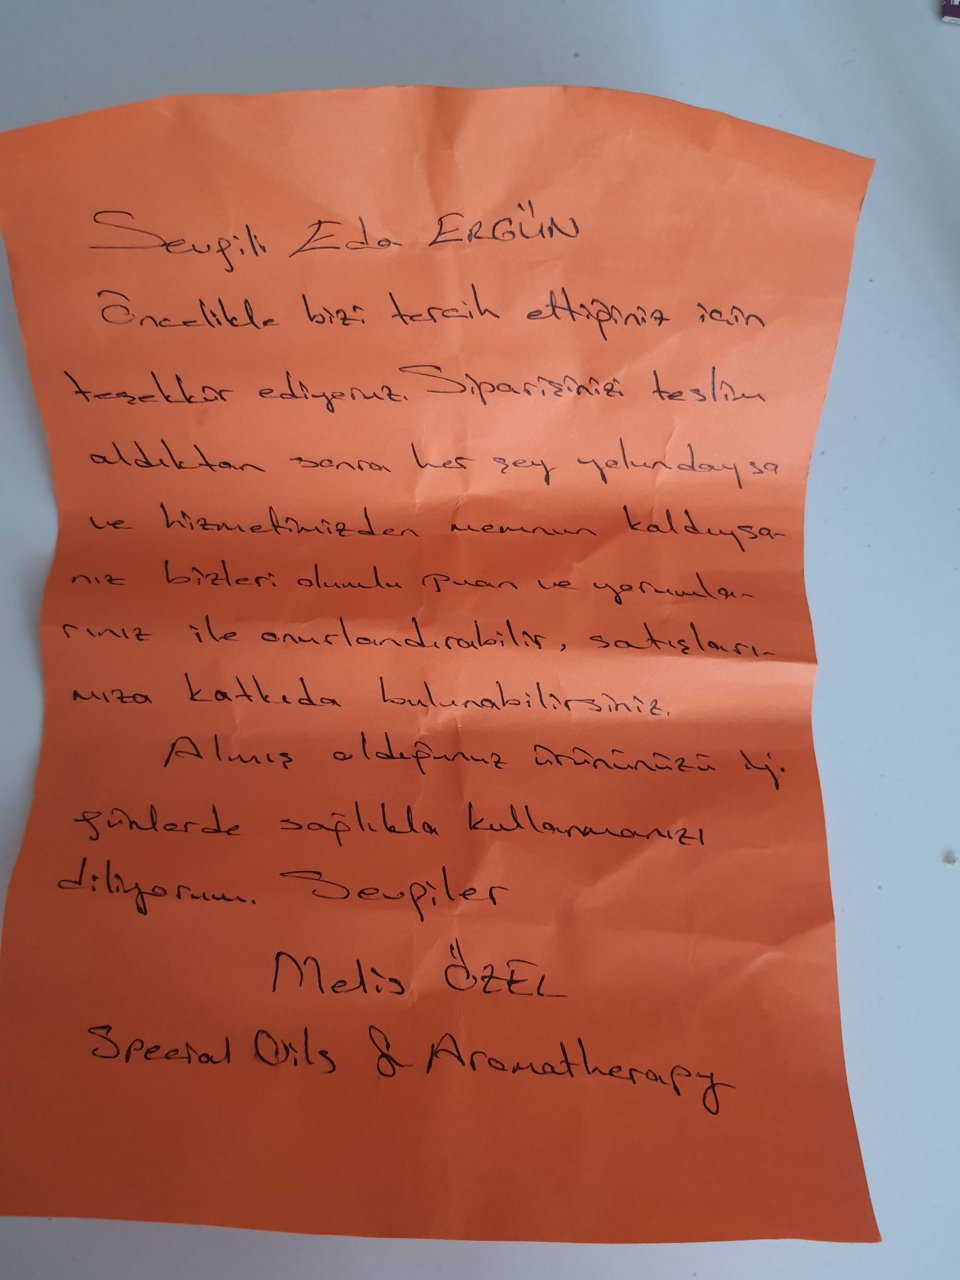 Sevgili Eda ERGÜN
Öncelikle bizi tercih ettiğiniz için
teşekkür ediyoruz. Siparişinizi teslim
aldıktan sonra her şey yolundaysa
ve hizmetimizden memnun kaldıysa-
nız bizleri olumlu puan ve yorumla-
rınız ile onurlandırabilir, satışları-
mıza katkıda bulunabilirsiniz.
Almış olduğunuz ürününüzü iyi
günlerde sağlıkla kullanmanızı
diliyorum. Sevgiler
Melis ÖZEL
Special Oils & Aromatherapy